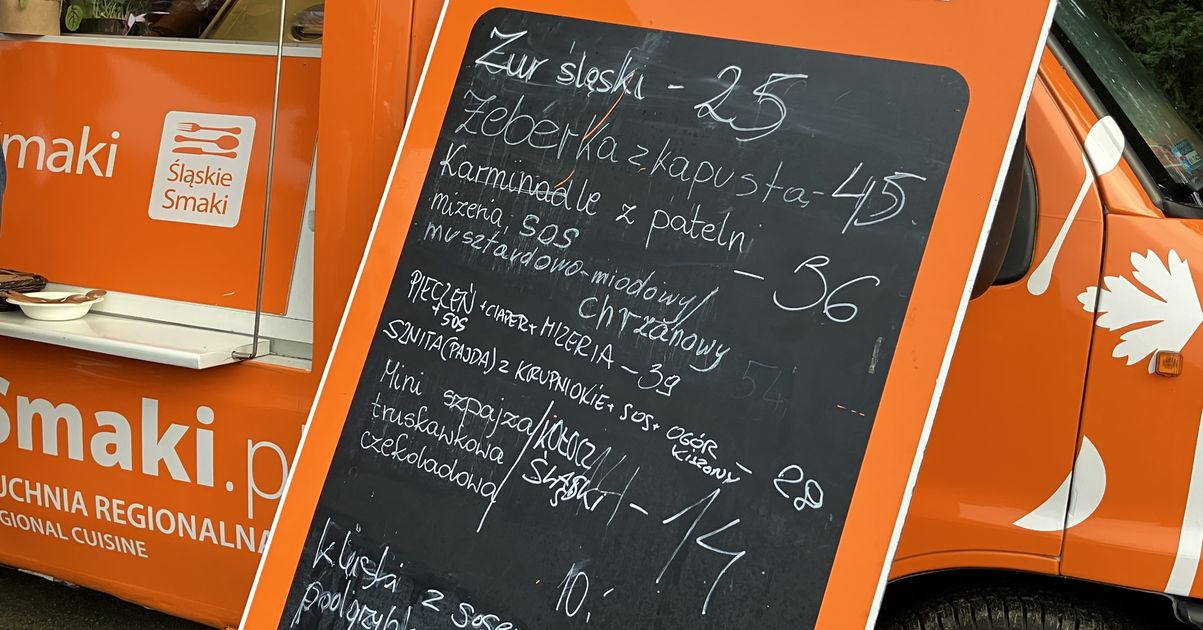 Smaki
Śląskie
Smaki
Smaki.pl
KUCHNIA REGIONALNA
REGIONAL CUISINE
Żur śląski - 25
Żeberka z kapustą - 45.
Karminadle z patelni
mizeria, SOS - 36
musztardowo-miodowy/
chrzanowy
PIECZEŃ + CIAPER + MIZERIA - 39
+ SOS
SZNITA (PAJDA) z KRUPNIOKIE + SOS + OGÓR - 28
KISZONY
Mini szpajza / KOŁOCZ
truskawkowa / ŚLĄSKI - 14
czekoladowa
10,-
Kluski z sosem